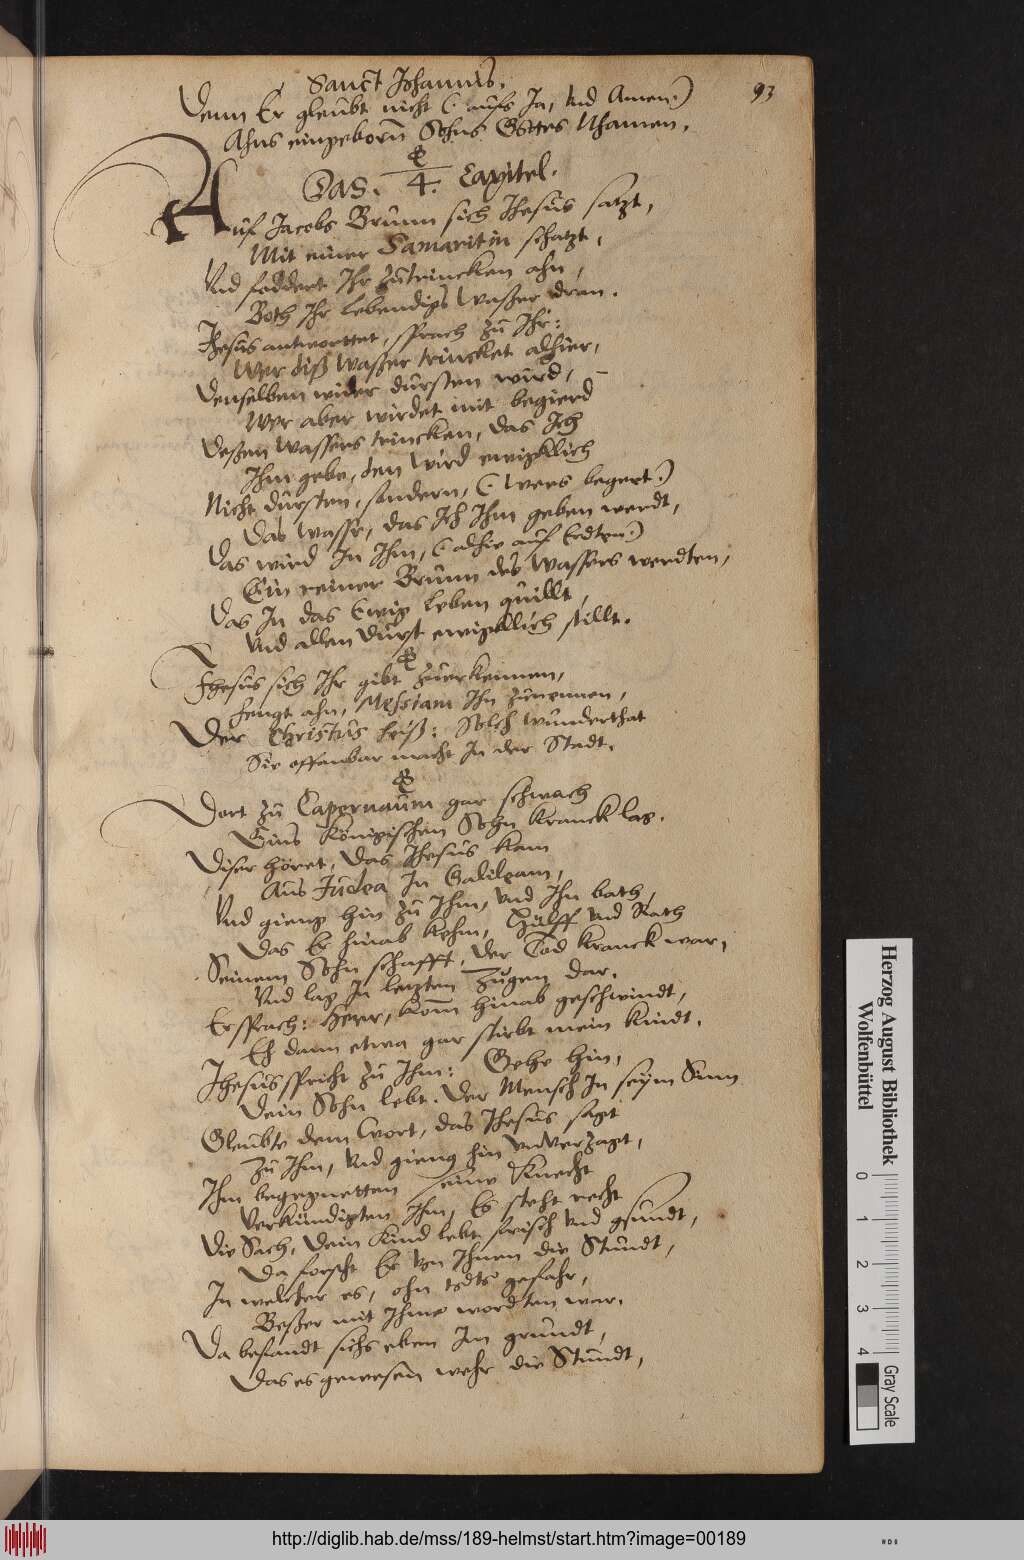 Sanct Johannis.
93
Denn Er gleubt nicht (: aufs Ja, vnd Amen:)
Ahns eingeborn Sohns Gottes Nhamen.
Das. 4. Capitel.
Auf Jacobs Brunn sich Jhesus satzt,
Mit einer Samaritin schatzt,
Vnd foddert Ihr zutrincken ahn,
Both Ihr lebendigs Waßer dran.
Jhesus antworttet, sprach zu Ihr:
Wer diß Waßer trincket alhier,
Denselben wider dürsten wird,
Wer aber wirdet mit begierd
Deßen Wassers trincken, das Ich
Ihm gebe, den wird ewigklich
Nicht dürsten, sondern, (: wers begert:)
Das Wasser, das Ich Ihm geben werdt,
Das wird In Ihm, (: alhie auf Erdten:)
Ein reiner Brunn des Wassers werdten,
Das In das Ewig leben quillt,
Vnd allen Durst ewigklich stillt.
Jhesus sich Ihr gibt zuerkennen,
fengt ahn, Messiam Ihn zunennen,
Der Christus heiß: Solch wunderthat
Sie offenbar macht In der Stadt.
Dort zu Capernaum gar schwach
Eins Königischen Sohn kranck lag.
Diser höret, das Jhesus kam
Aus Judea In Galileam,
Vnd gieng hin zu Ihm, vnd Ihn bath,
Das Er hinab kehm, Hülff vnd Rath
Seinem Sohn schafft, der Tod kranck war,
Vnd lag In letzten Zügen dar.
Er sprach: Herr, kom hinab geschwindt,
Eh dann etwa gar stirbt mein kindt.
Jhesus spricht zu Ihm: Gehe hin,
Dein Sohn lebt. Der Mensch In seym Sinn
Gleubte dem Wort, das Jhesus sagt
Zu Ihm, vnd gieng hin vnverzagt,
Ihm begegnetten seine Knecht
Verkündigten Ihm, Es steht recht
Die Sach, Dein Kind lebt frisch vnd gsundt,
Da forscht Er von Ihnen die Stundt,
In welcher es, ohn tods gefahr,
Beßer mit Ihme wordten war.
Da befandt sichs eben Im grundt,
Das es gewesen wehr die Stundt,
Herzog August Bibliothek
Wolfenbüttel
0 1 2 3 4
Gray Scale
http://diglib.hab.de/mss/189-helmst/start.htm?image=00189